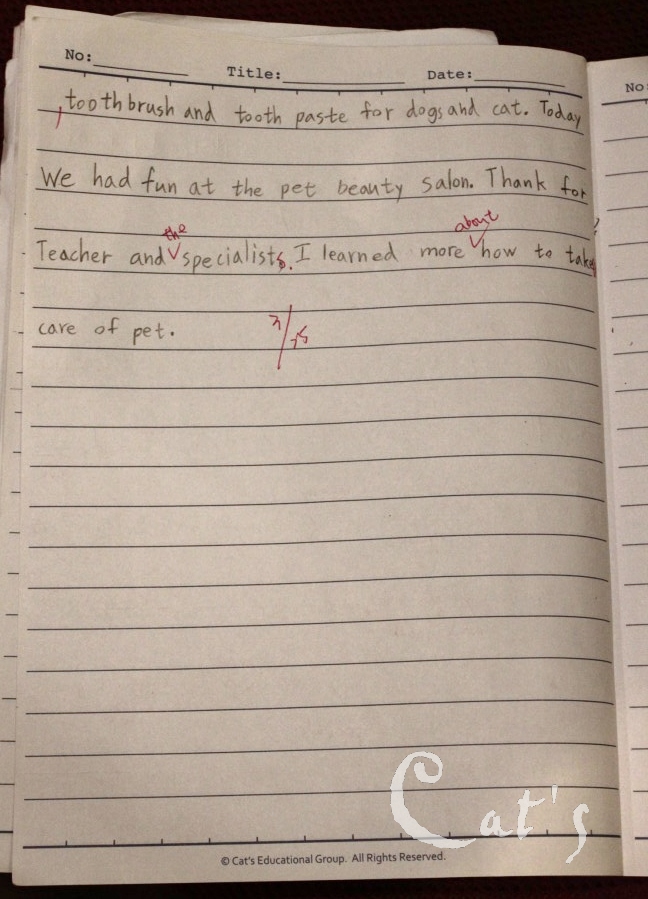 No:
Title: Date:
No:
, toothbrush and tooth paste for dogs and cat. Today
We had fun at the pet beauty salon. Thank for
the about
Teacher and specialists. I learned more how to take
care of pet.
Cat's
© Cat's Educational Group. All Rights Reserved.